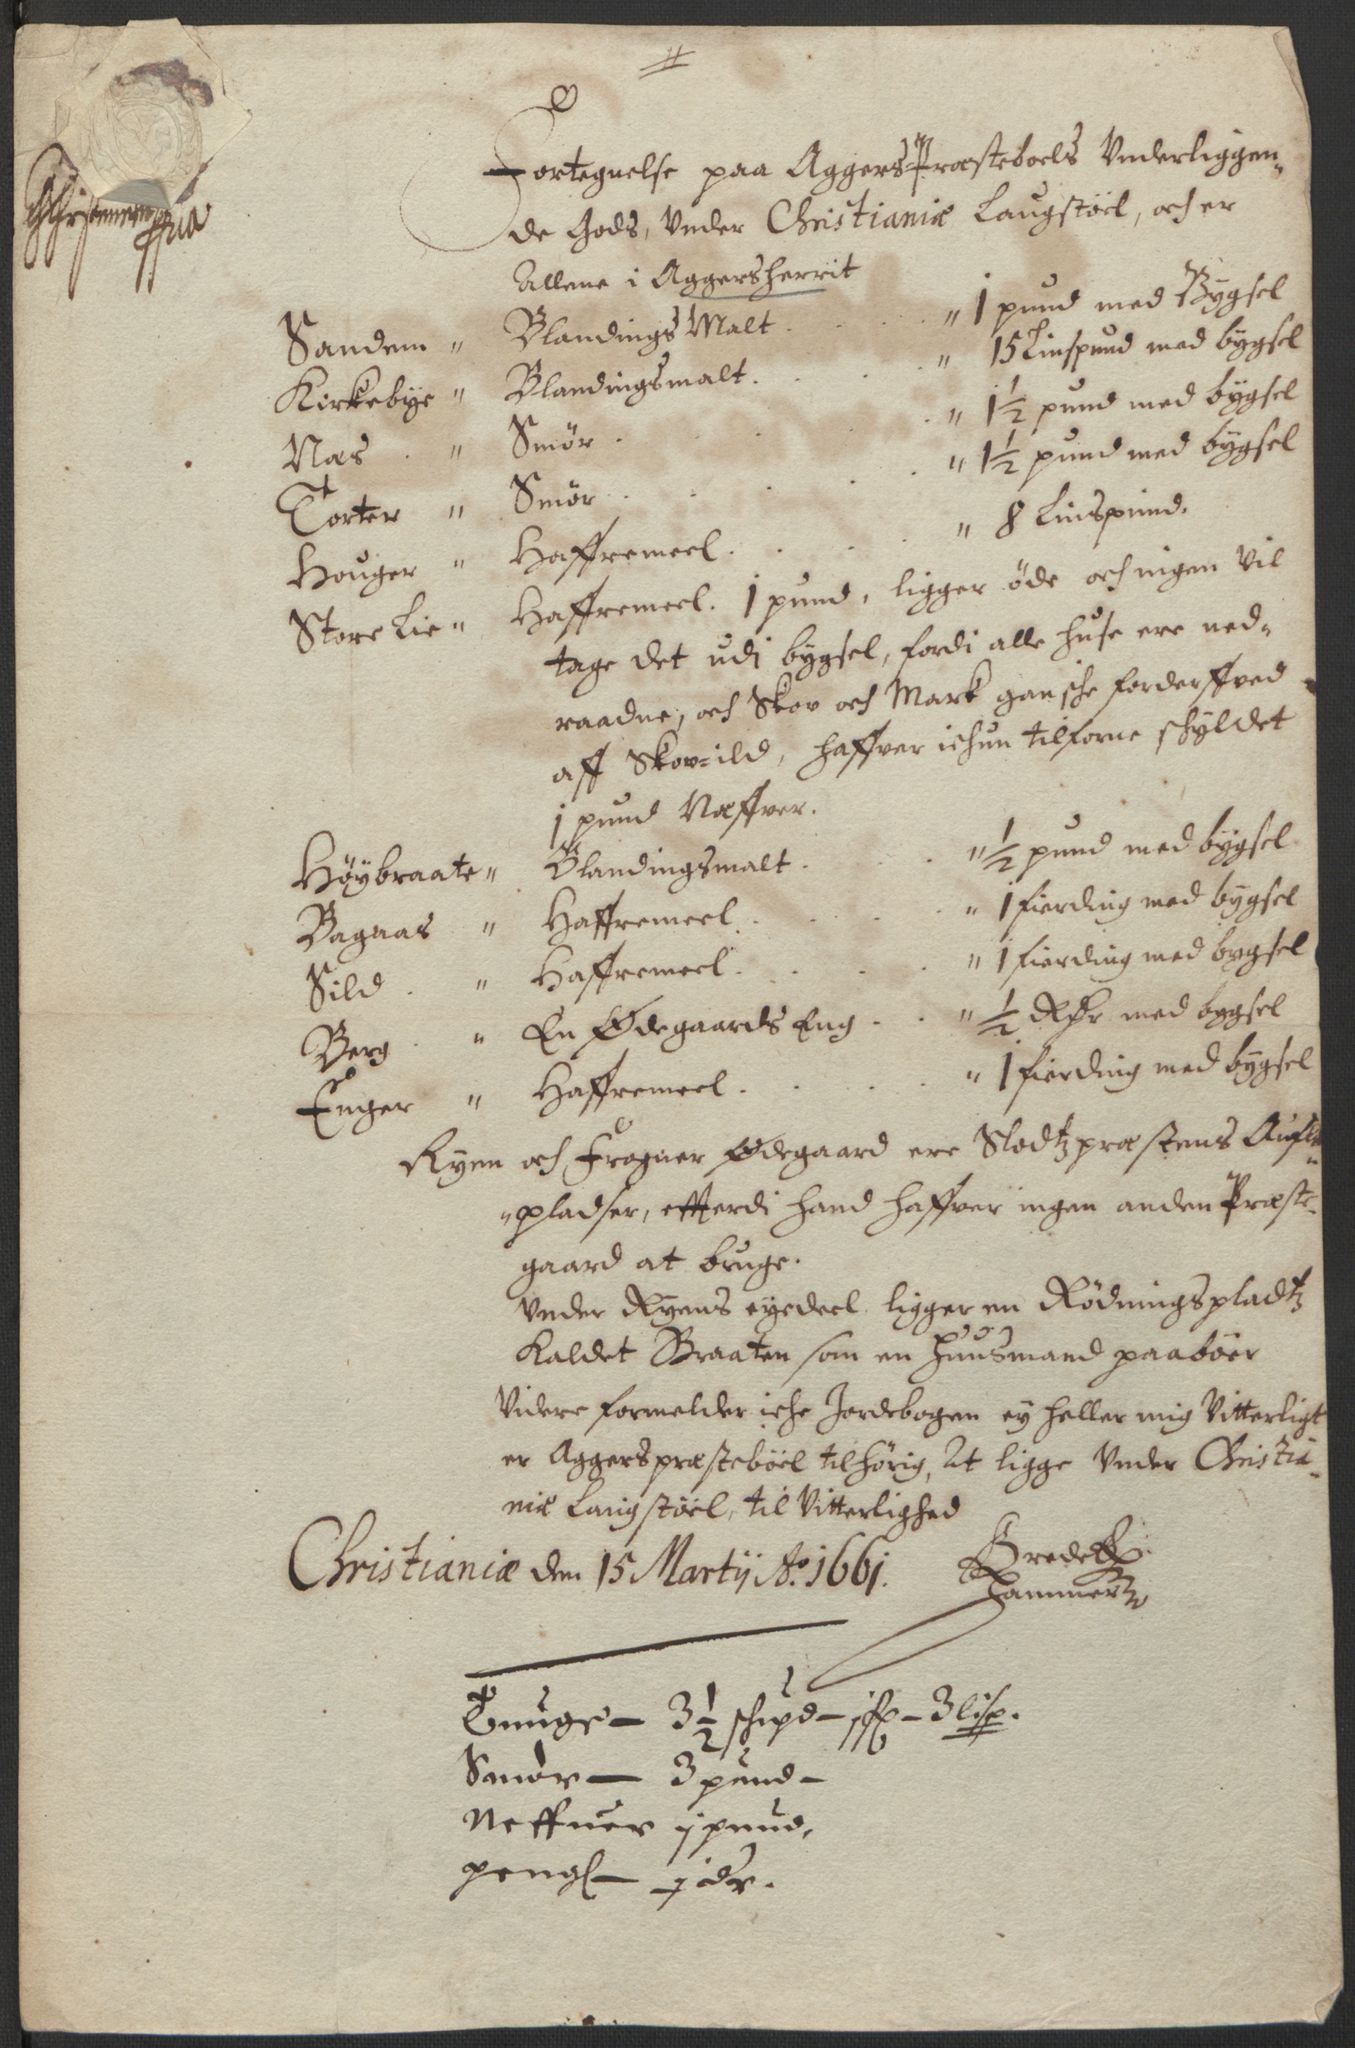 Fortegnelse paa Aggers Præsteboels Vnderliggen-
de Gods, Vnder Christianiæ Laugstöel, och er
Allene i Aggersherrit
Sandem " Blandings Malt . . . " 1 pund med Bygsel
Kirkebye " Blandingsmalt . . . " 15 Linspund med bygsel
Næs . " Smör . . . . " 1½ pund med bygsel
Torter " Smör . . . . " 1½ pund med bygsel
Houger " Haffremeel . . . " 8 Linspund.
Store Lie " Haffremeel. 1 pund, ligger öde och ingen vil
tage det udj bygsel, fordi alle huse ere ned-
raadne, och Skov och Mark gansche forderffved
aff Skov-ild, haffver ichun tilforne schyldet
1 pund Næffver.
Höybraate " Blandingsmalt . . " ½ pund med bygsel
Bagaas " Haffremeel . . . " 1 fierding med bygsel
Sild . " Haffremeel . . . " 1 fierding med bygsel
Berg . " En Ødegaards Eng . . " ½ Rdr med bygsel
Enger " Haffremeel . . . " 1 fierding med bygsel
Ryen och Frogner Ødegaard ere Slodtzpræstens
pladser, effterdi hand haffver ingen anden Præste-
gaard at bruge.
Vnder Ryens eyedeel ligger en Rödningspladtz
Kaldet Braaten som en Huusmand paaböer
Videre formelder iche Jordebogen ey heller mig Vitterligt
er Aggers præsteböel tilhörig, At ligge Vnder Christia-
niæ Laugstöel, til Vitterlighed
Christianiæ den 15 Martij Ao. 1661.
Hammer
Tunge — 3½ schpd — — 3 lisp.
Smör — 3 pund —
Neffuer j pund.
peng — j dr.